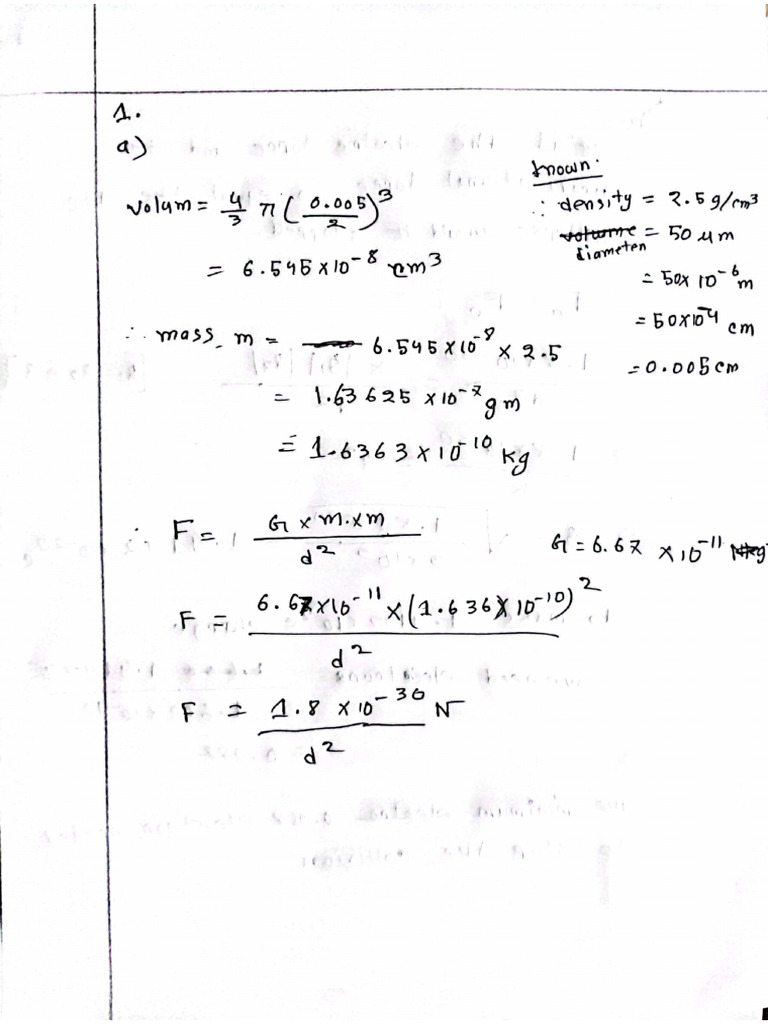 1.
a)
known:
∴ density = 2.5 g/cm³
diameter = 50 um
= 50x 10⁻⁶ m
= 50x10⁻⁴ cm
= 0.005cm
volum = 4/3 π (0.005/2)³
= 6.545 x10⁻⁸ cm³
∴ mass, m = 6.545 x10⁻⁸ x 2.5
= 1.63625 x10⁻⁷ gm
= 1.6363 x 10⁻¹⁰ kg
∴ F = G x m.xm / d²
G = 6.67 x10⁻¹¹
F = 6.67 x10⁻¹¹ x (1.636 x 10⁻¹⁰)² / d²
F = 1.8 x10⁻³⁰ / d² N